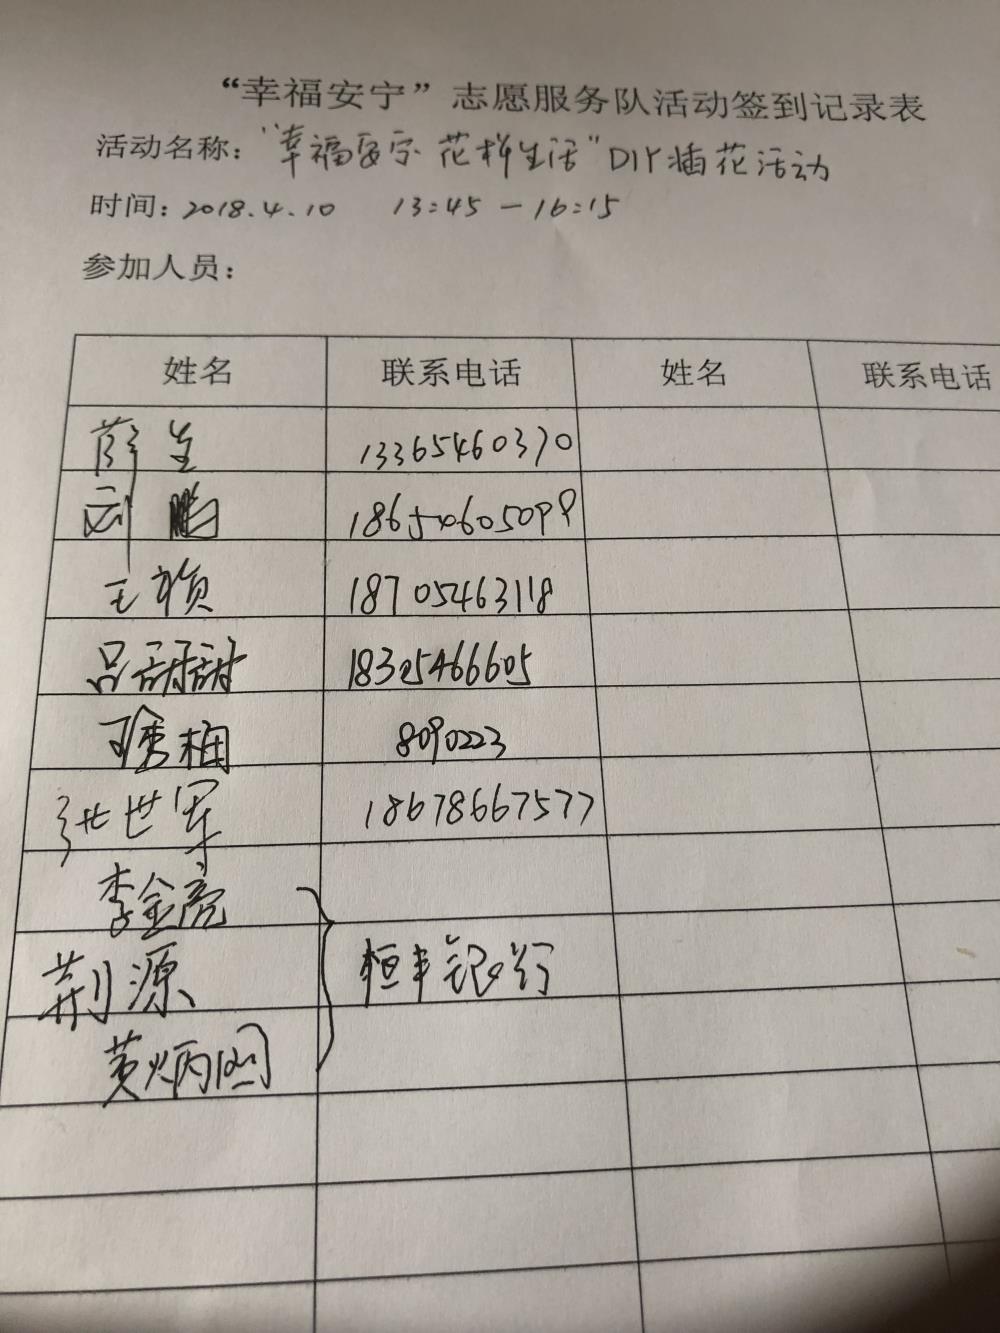 “幸福安宁”志愿服务队活动签到记录表
活动名称：“幸福安宁 花样生活”DIY插花活动
时间：2018.4.10 13:45-16:15
参加人员：
姓名 联系电话 姓名 联系电话
薛生 13365460370
刘鹏 18654605099
王祯 18705463118
吕甜甜 18325466605
秀梅 8090223
张世军 18678667577
李金亮
荆源 恒丰银行
黄炳